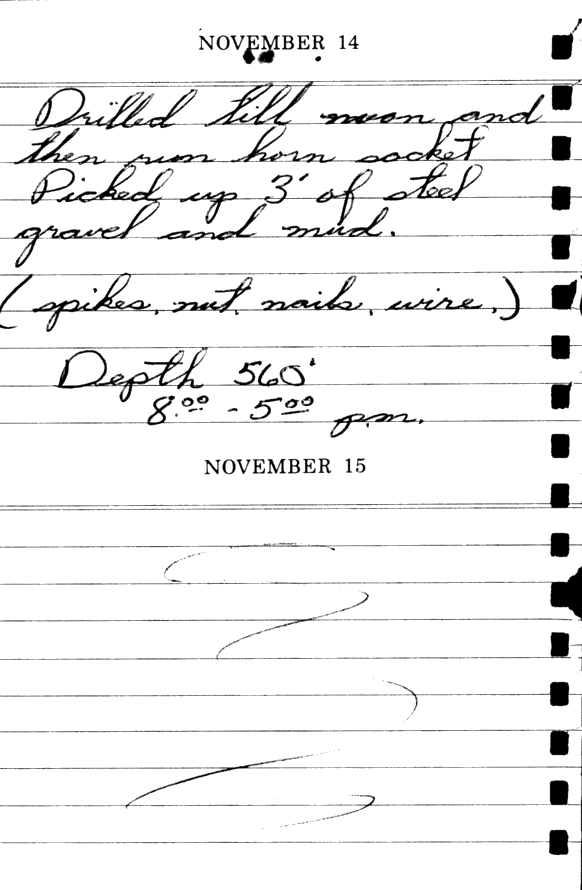 NOVEMBER 14
Drilled till noon and
then run horn socket
Picked up 3' of steel
gravel and mud.
(spikes, nut, nails, wire,)
Depth 560'
8:00 - 5:00 p.m.
NOVEMBER 15